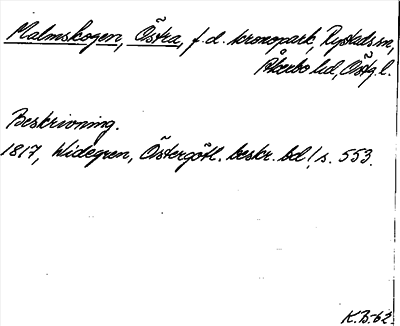 Malmskogen, Östra, f.d. kronopark, Rystads sn,
Åkerbo hd, Östg.l.
Beskrivning.
1817, Widegren, Östergötl. beskr. bd 1, s. 553.
K.B-62.